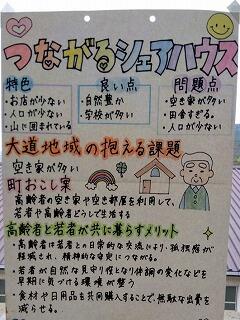 つながるシェアハウス
特色
・お店が少ない
・人口が少ない
・山に囲まれている
良い点
・自然豊か
・学校が多い
問題点
・空き家が多い
・田舎すぎる。
・人口が少ない
大道地域の抱える課題
空き家が多い
町おこし案
高齢者の空き家や空き部屋を利用して、
若者や高齢者どうしで生活する
高齢者と若者が共に暮らすメリット
・高齢者は若者との日常的な交流により、孤独感が
軽減され、精神的な安定につながる。
・若者が自然な見守り役となり体調の変化などを
早期に気づける環境が整う
・食材や日用品を共同購入することで無駄な出費を
減らせる。